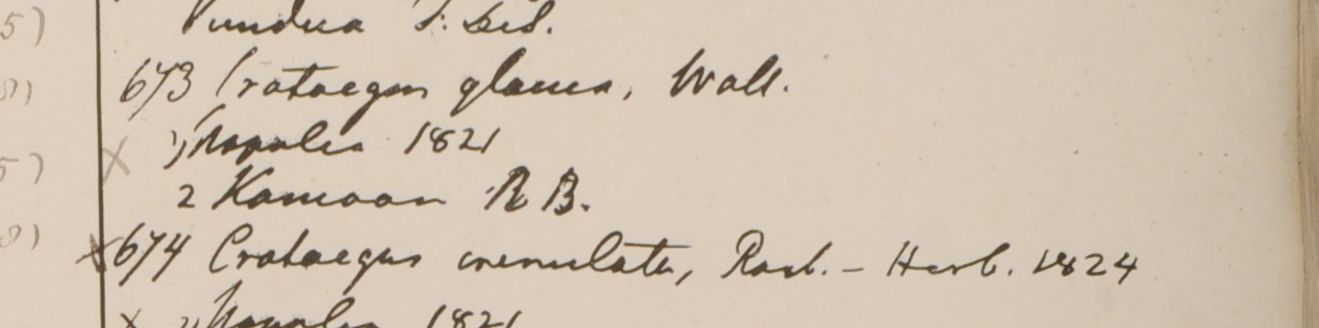 5) Pundua F. Sil.
8) 673 Crataegus glauca, Wall.
X 1) Napalia 1821
5) 2 Kamaon R B.
8) X 674 Crataegus crenulata, Roxb. – Herb. 1824
X Napalia 1821